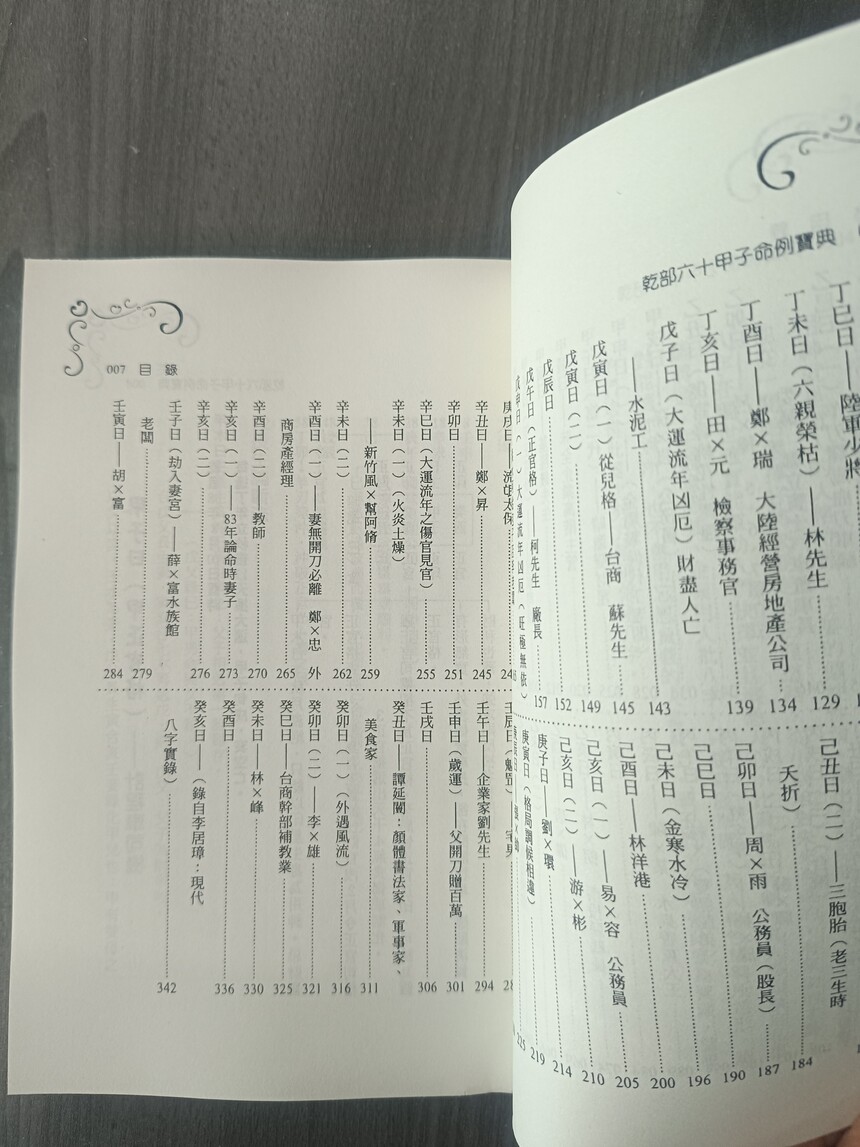 乾部六十甲子命例寶典
丁巳日——陸軍少將
丁未日（六親榮枯）——林先生 129
丁酉日——鄭×瑞 大陸經營房地產公司 134
丁亥日——田×元 檢察事務官 139
戊子日（大運流年凶厄）財盡人亡
——水泥工 143
戊寅日（一）從兒格——台商 蘇先生 145
戊寅日（二） 149
戊辰日 152
戊午日（正官格）——柯先生 廠長 157
戊申日（一）大運流年凶厄（旺極無依）
己丑日（二）——三胞胎（老三生時
夭折） 184
己卯日——周×雨 公務員（股長） 187
己巳日 190
己未日（金寒水冷） 196
己酉日——林洋港 200
己亥日（一）——易×容 公務員 205
己亥日（二）——游×彬 210
庚子日——劉×環 214
庚寅日（格局調候相違） 219
225
007 目錄
庚戌日——流氓太保
辛丑日——鄭×昇 245
辛卯日 251
辛巳日（大運流年之傷官見官） 255
辛未日（一）（火炎土燥）
——新竹風×幫阿脩 259
辛未日（二） 262
辛酉日（一）——妻無開刀必離 鄭×忠 外
商房產經理 265
辛酉日（二）——教師 270
辛亥日（一）——83年論命時妻子 273
辛亥日（二） 276
壬子日（劫入妻宮）——薛×富水族館
老闆 279
壬寅日——胡×富 284
壬辰日（魁罡）——宅男
壬午日——企業家劉先生 294
壬申日（歲運）——父開刀贈百萬 301
壬戌日 306
癸丑日——譚延闓：顏體書法家、軍事家、
美食家 311
癸卯日（一）（外遇風流） 316
癸卯日（二）——李×雄 321
癸巳日——台商幹部補教業 325
癸未日——林×峰 330
癸酉日 336
癸亥日——（錄自李居璋：現代
八字實錄） 342